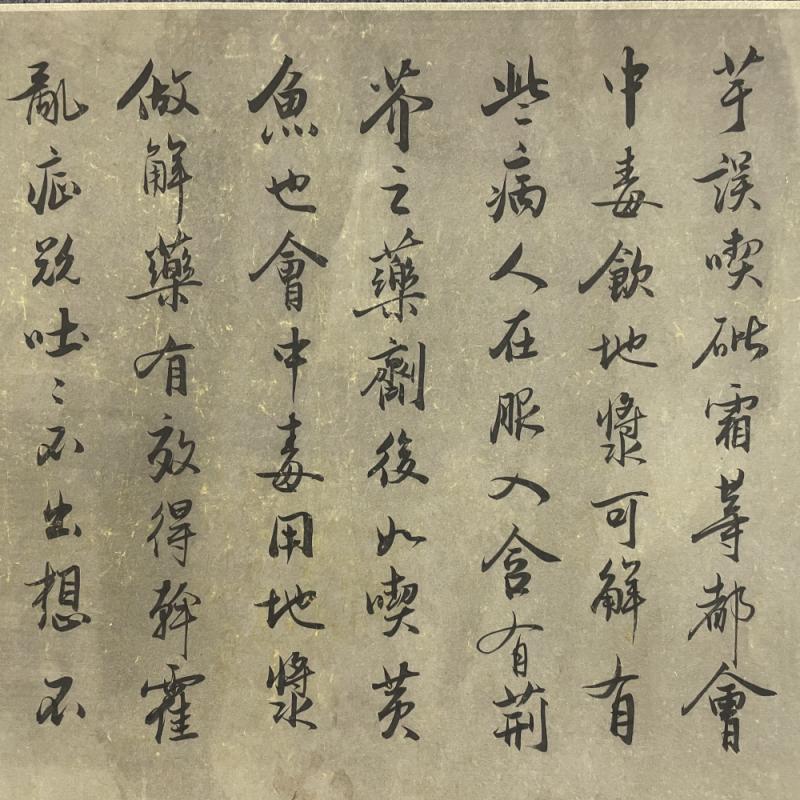 芋誤喫砒霜等都會
中毒飲地漿可解有
些病人在服入含有荊
芥之藥劑後如喫黄
魚也會中毒用地漿
做解藥有效得幹霍
亂症欲吐〻不出想不